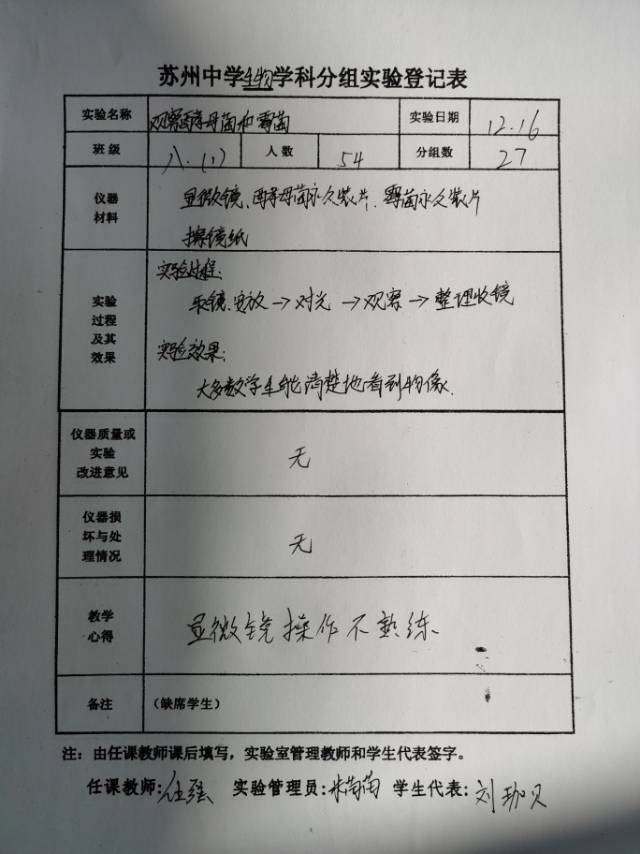 苏州中学生物学科分组实验登记表
实验名称 观察酵母菌和霉菌 实验日期 12.16
班级 八.(1) 人数 54 分组数 27
仪器材料 显微镜、酵母菌永久装片、霉菌永久装片
擦镜纸
实验过程及其效果
实验过程:
取镜、安放→对光→观察→整理收镜
实验效果:
大多数学生能清楚地看到物像.
仪器质量或实验改进意见 无
仪器损坏与处理情况 无
教学心得 显微镜操作不熟练
备注 (缺席学生)
注:由任课教师课后填写,实验室管理教师和学生代表签字。
任课教师: 实验管理员: 学生代表:刘